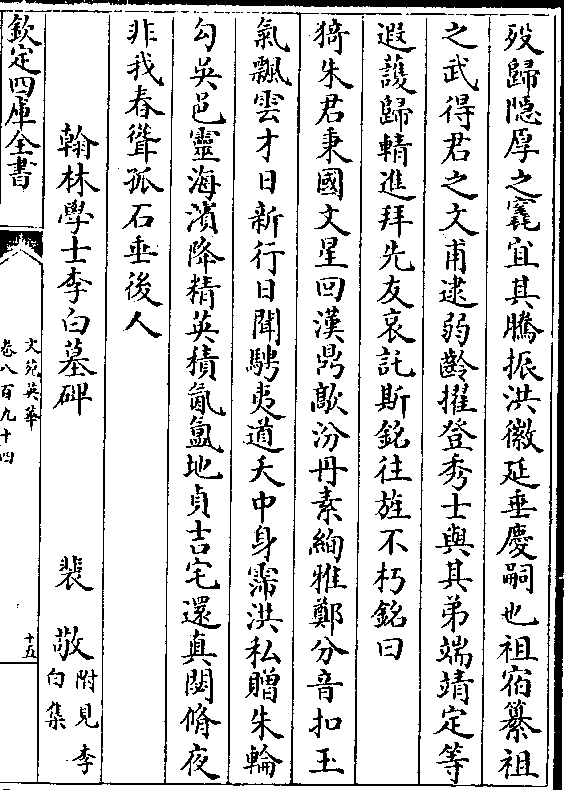 殁歸隠厚之窀宜其騰振洪徽延垂慶嗣也祖宿纂祖
之武得君之文甫逮弱齡擢登秀士與其弟端靖定等
遐護歸輤進拜先友哀託斯銘往旌不朽銘曰
猗朱君秉國文星回漢鼎歊汾丹素絢雅鄭分音扣玉
氣飄雲才日新行日聞騁夷道夭中身霈洪私贈朱輪
勾吳邑靈海濱降精英積氤氲地貞吉宅還真閟脩夜
非我春聳孤石垂後人
翰林學士李白墓碑 裴敬 附見李白集
欽定四庫全書
文苑英華
卷八百九十四
十五